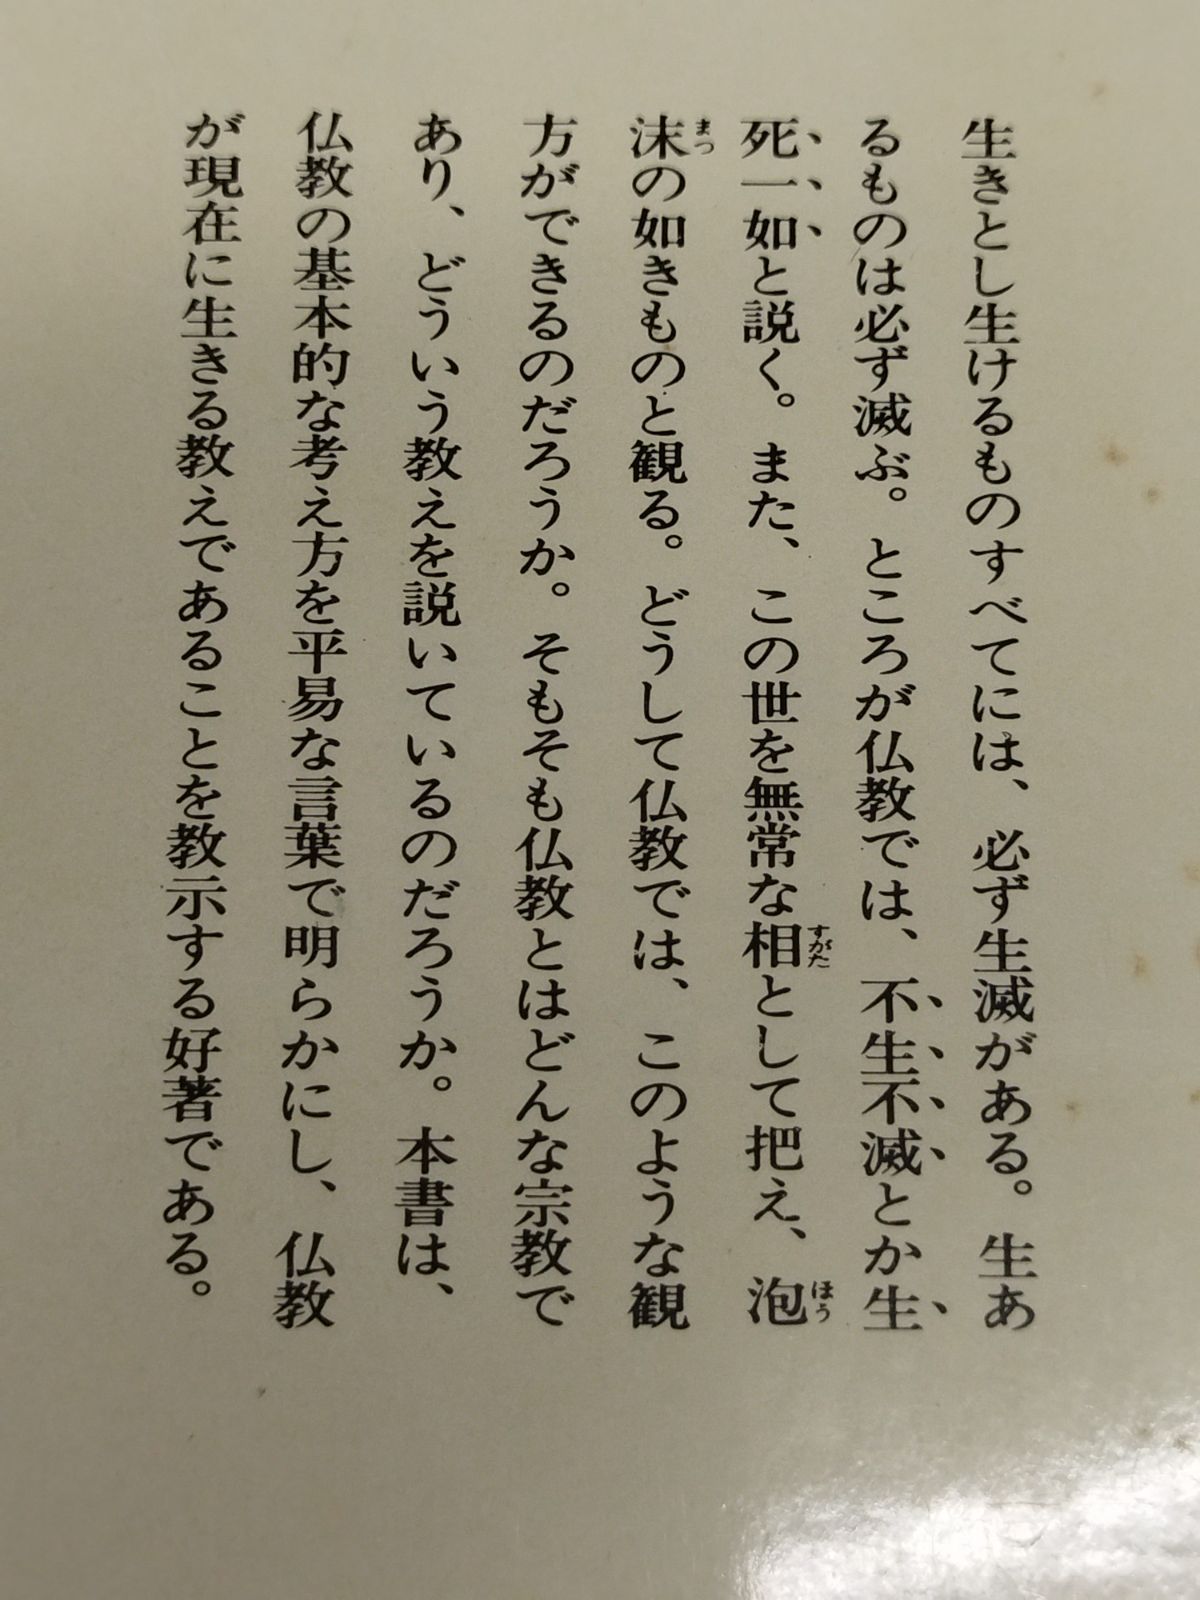 生きとし生けるものすべてには、必ず生滅がある。生あ
るものは必ず滅ぶ。ところが仏教では、不生不滅とか生
死一如と説く。また、この世を無常な相として把え、泡
沫の如きものと観る。どうして仏教では、このような観
方ができるのだろうか。そもそも仏教とはどんな宗教で
あり、どういう教えを説いているのだろうか。本書は、
仏教の基本的な考え方を平易な言葉で明らかにし、仏教
が現在に生きる教えであることを教示する好著である。